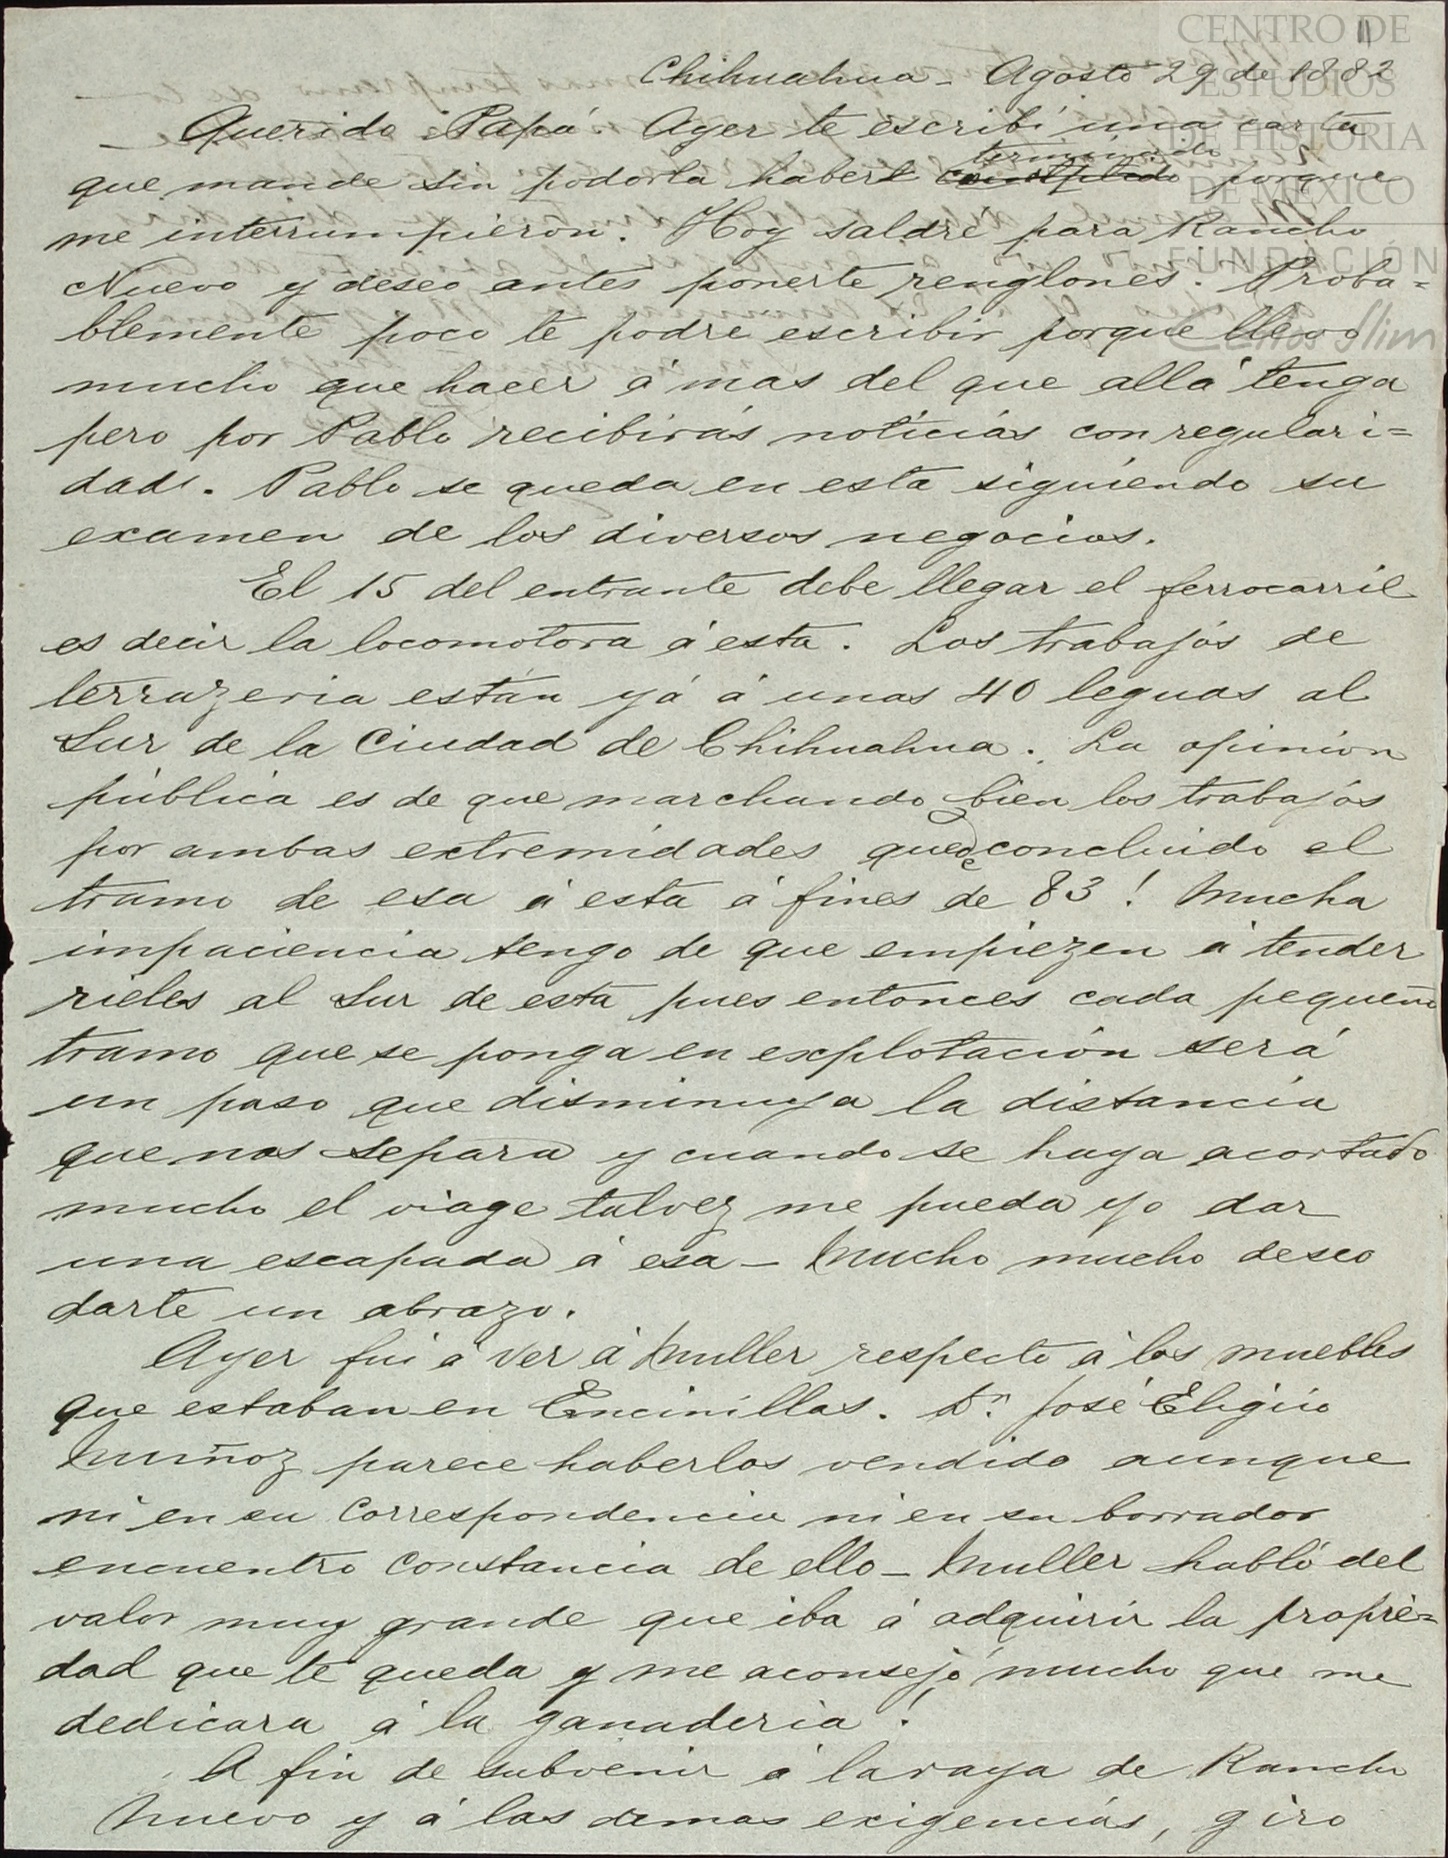 11
CENTRO DE
ESTUDIOS
DE HISTORIA
DE MÉXICO
FUNDACIÓN
Carlos Slim
Chihuahua - Agosto 29 de 1882
Querido Papá Ayer te escribí una carta
que mande sin poderla haber terminado porque
me interrumpieron. Hoy saldré para Rancho
Nuevo y deseo antes ponerte renglones. Proba=
blemente poco te podre escribir porque llevo
mucho que hacer á mas del que allá tenga
pero por Pablo recibirás noticias con regulari=
dad. Pablo se queda en esta siguiendo su
examen de los diversos negocios.
El 15 del entrante debe llegar el ferrocarril
es decir la locomotora á esta. Los trabajos de
terrazeria están yá á unas 40 leguas al
Sur de la Ciudad de Chihuahua. La opinion
pública es de que marchando bien los trabajos
por ambas extremidades quede concluido el
tramo de esa á esta á fines de 83! Mucha
impaciencia tengo de que empiezen á tender
rieles al Sur de esta pues entonces cada pequeño
tramo que se ponga en explotación será
un paso que disminuya la distancia
que nos separa y cuando se haya acortado
mucho el viage talvez me pueda yo dar
una escapada á esa - Mucho mucho deseo
darte un abrazo.
Ayer fui á ver á Muller respecto á los muebles
que estaban en Encinillas. Dn. José Eligio
Muñoz parece haberlos vendido aunque
ni en su correspondencia ni en su borrador
encuentro constancia de ello - Muller habló del
valor muy grande que iba á adquirir la propie=
dad que te queda y me aconsejó mucho que me
dedicara á la ganaderia!
A fin de subvenir á la raya de Rancho
Nuevo y á las demas exigencias, giro